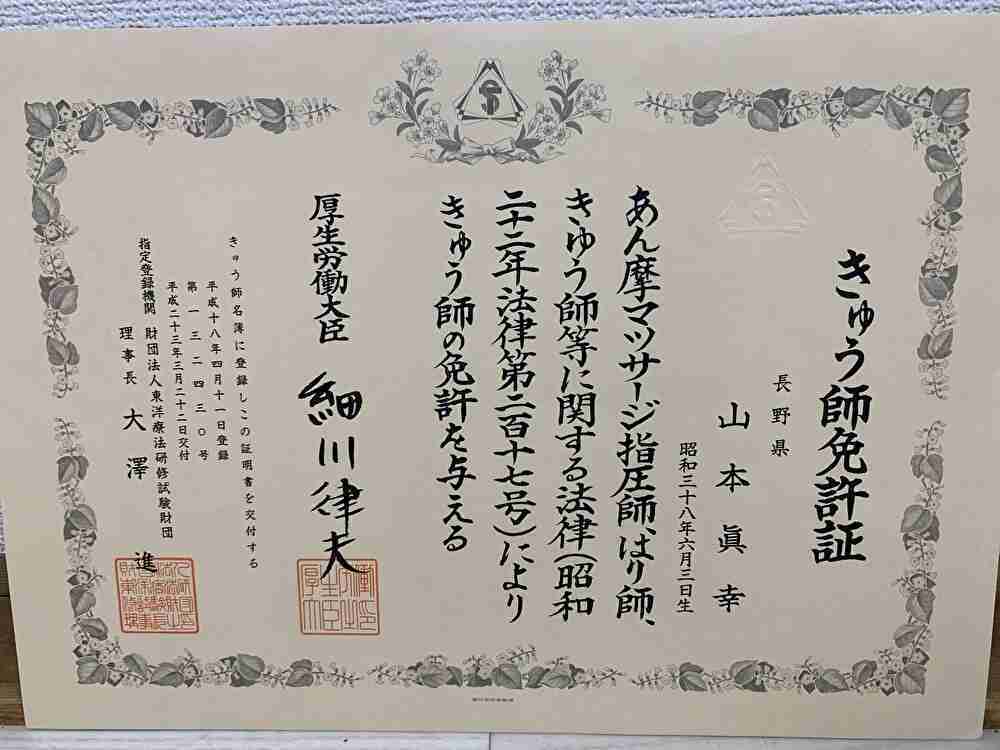 きゅう師免許証
長野県
山本眞幸
昭和三十八年六月三日生
あん摩マツサージ指圧師、はり師、
きゆう師等に関する法律(昭和
二十二年法律第二百十七号)により
きゅう師の免許を与える
厚生労働大臣 細川律夫
きゅう師名簿に登録しこの証明書を交付する
平成十八年四月十一日登録
第一三二一四三〇号
平成二十三年三月二十二日交付
指定登録機関 財団法人東洋療法研修試験財団
理事長 大澤進